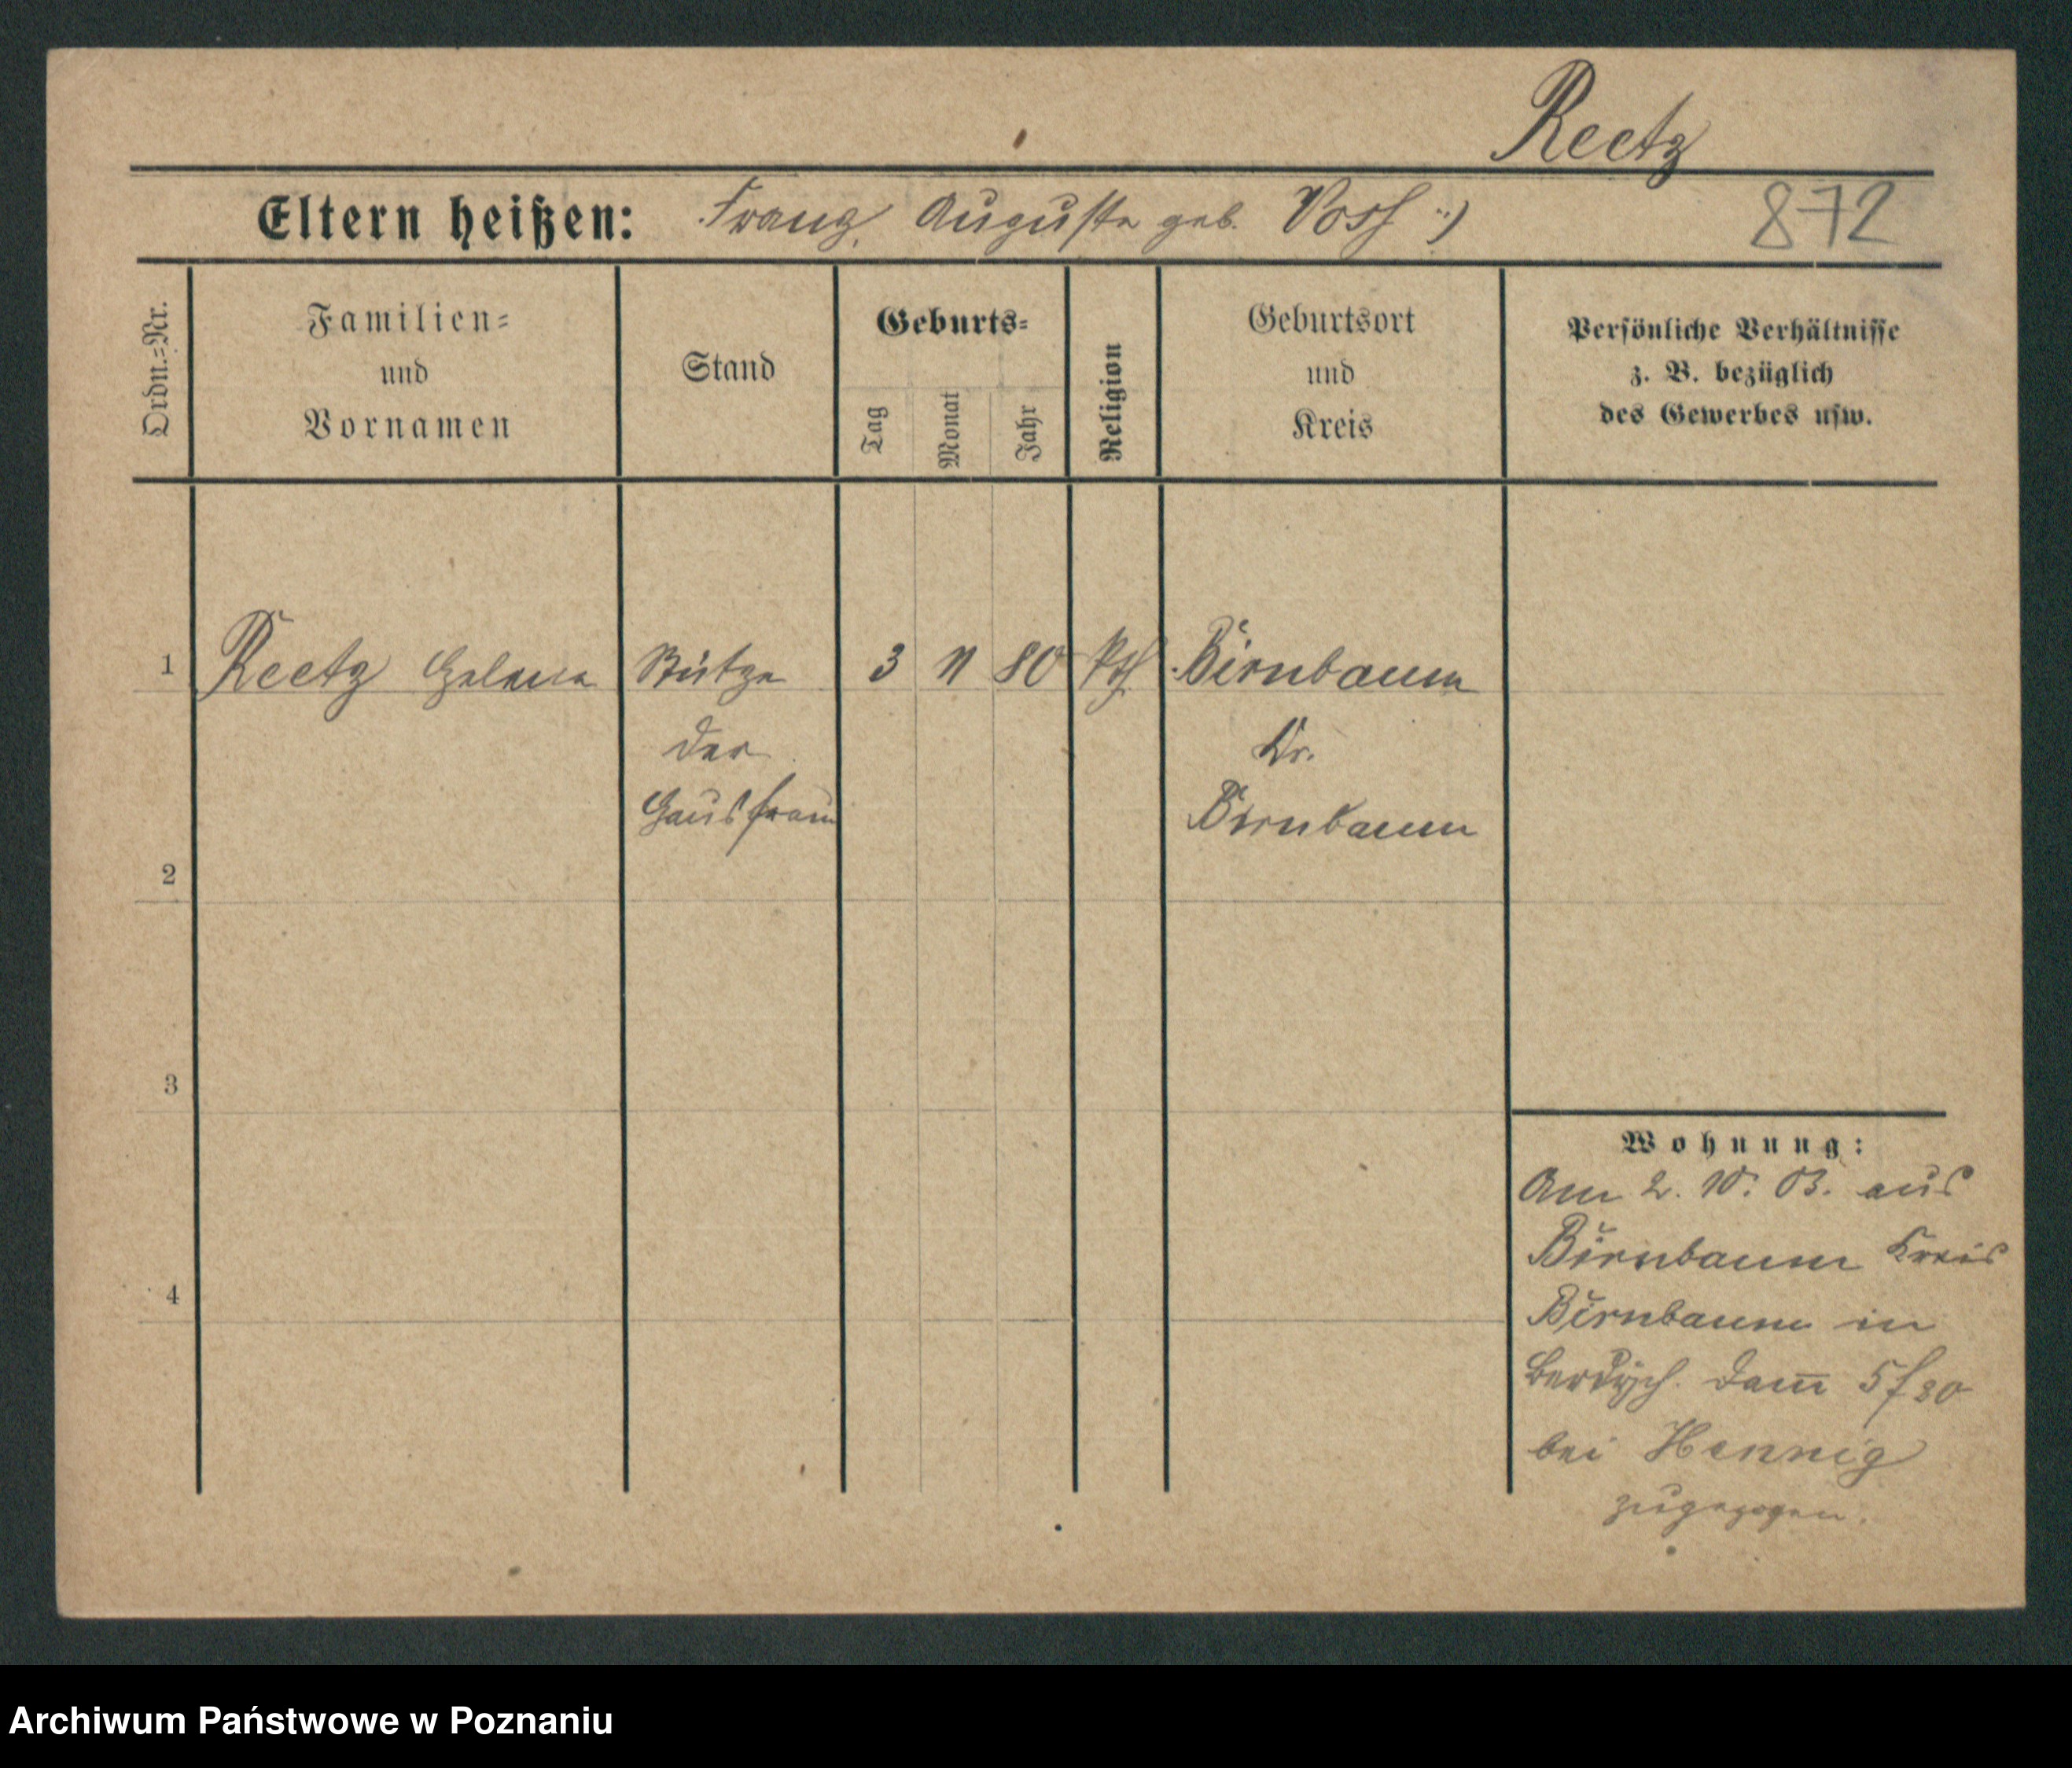 Reetz
Eltern heißen: Franz, Auguste geb. Voss :)
872
Ordn.=Nr.
Familien=
und
Vornamen
Stand
Geburts=
Tag
Monat
Jahr
Religion
Geburtsort
und
Kreis
Persönliche Verhältnisse
z. B. bezüglich
des Gewerbes usw.
1 Reetz Helene Stütze 3 11 80 Birnbaum
der Kr.
Hausfrau Birnbaum
2
3
4
Wohnung:
Am 2. 10. 03. aus
Birnbaum Kreis
Birnbaum in
Berdych. Dam̄
bei Hennig
zugezogen.
Archiwum Państwowe w Poznaniu